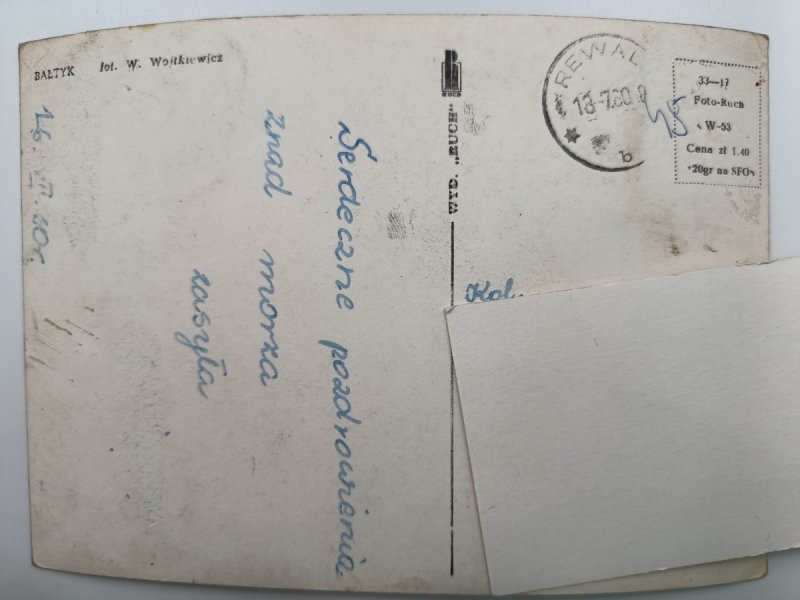 BAŁTYK fot. W. Wojtkiewicz
16 VII. 60r.
Serdeczne pozdrowienia
znad morza
zasyła
WYD. „RUCH"
RUCH
REWAL
18-7.60
b
45
33—17
Foto-Ruch
W-53
Cena zł 1.40
+20gr na SFOS
Kol.